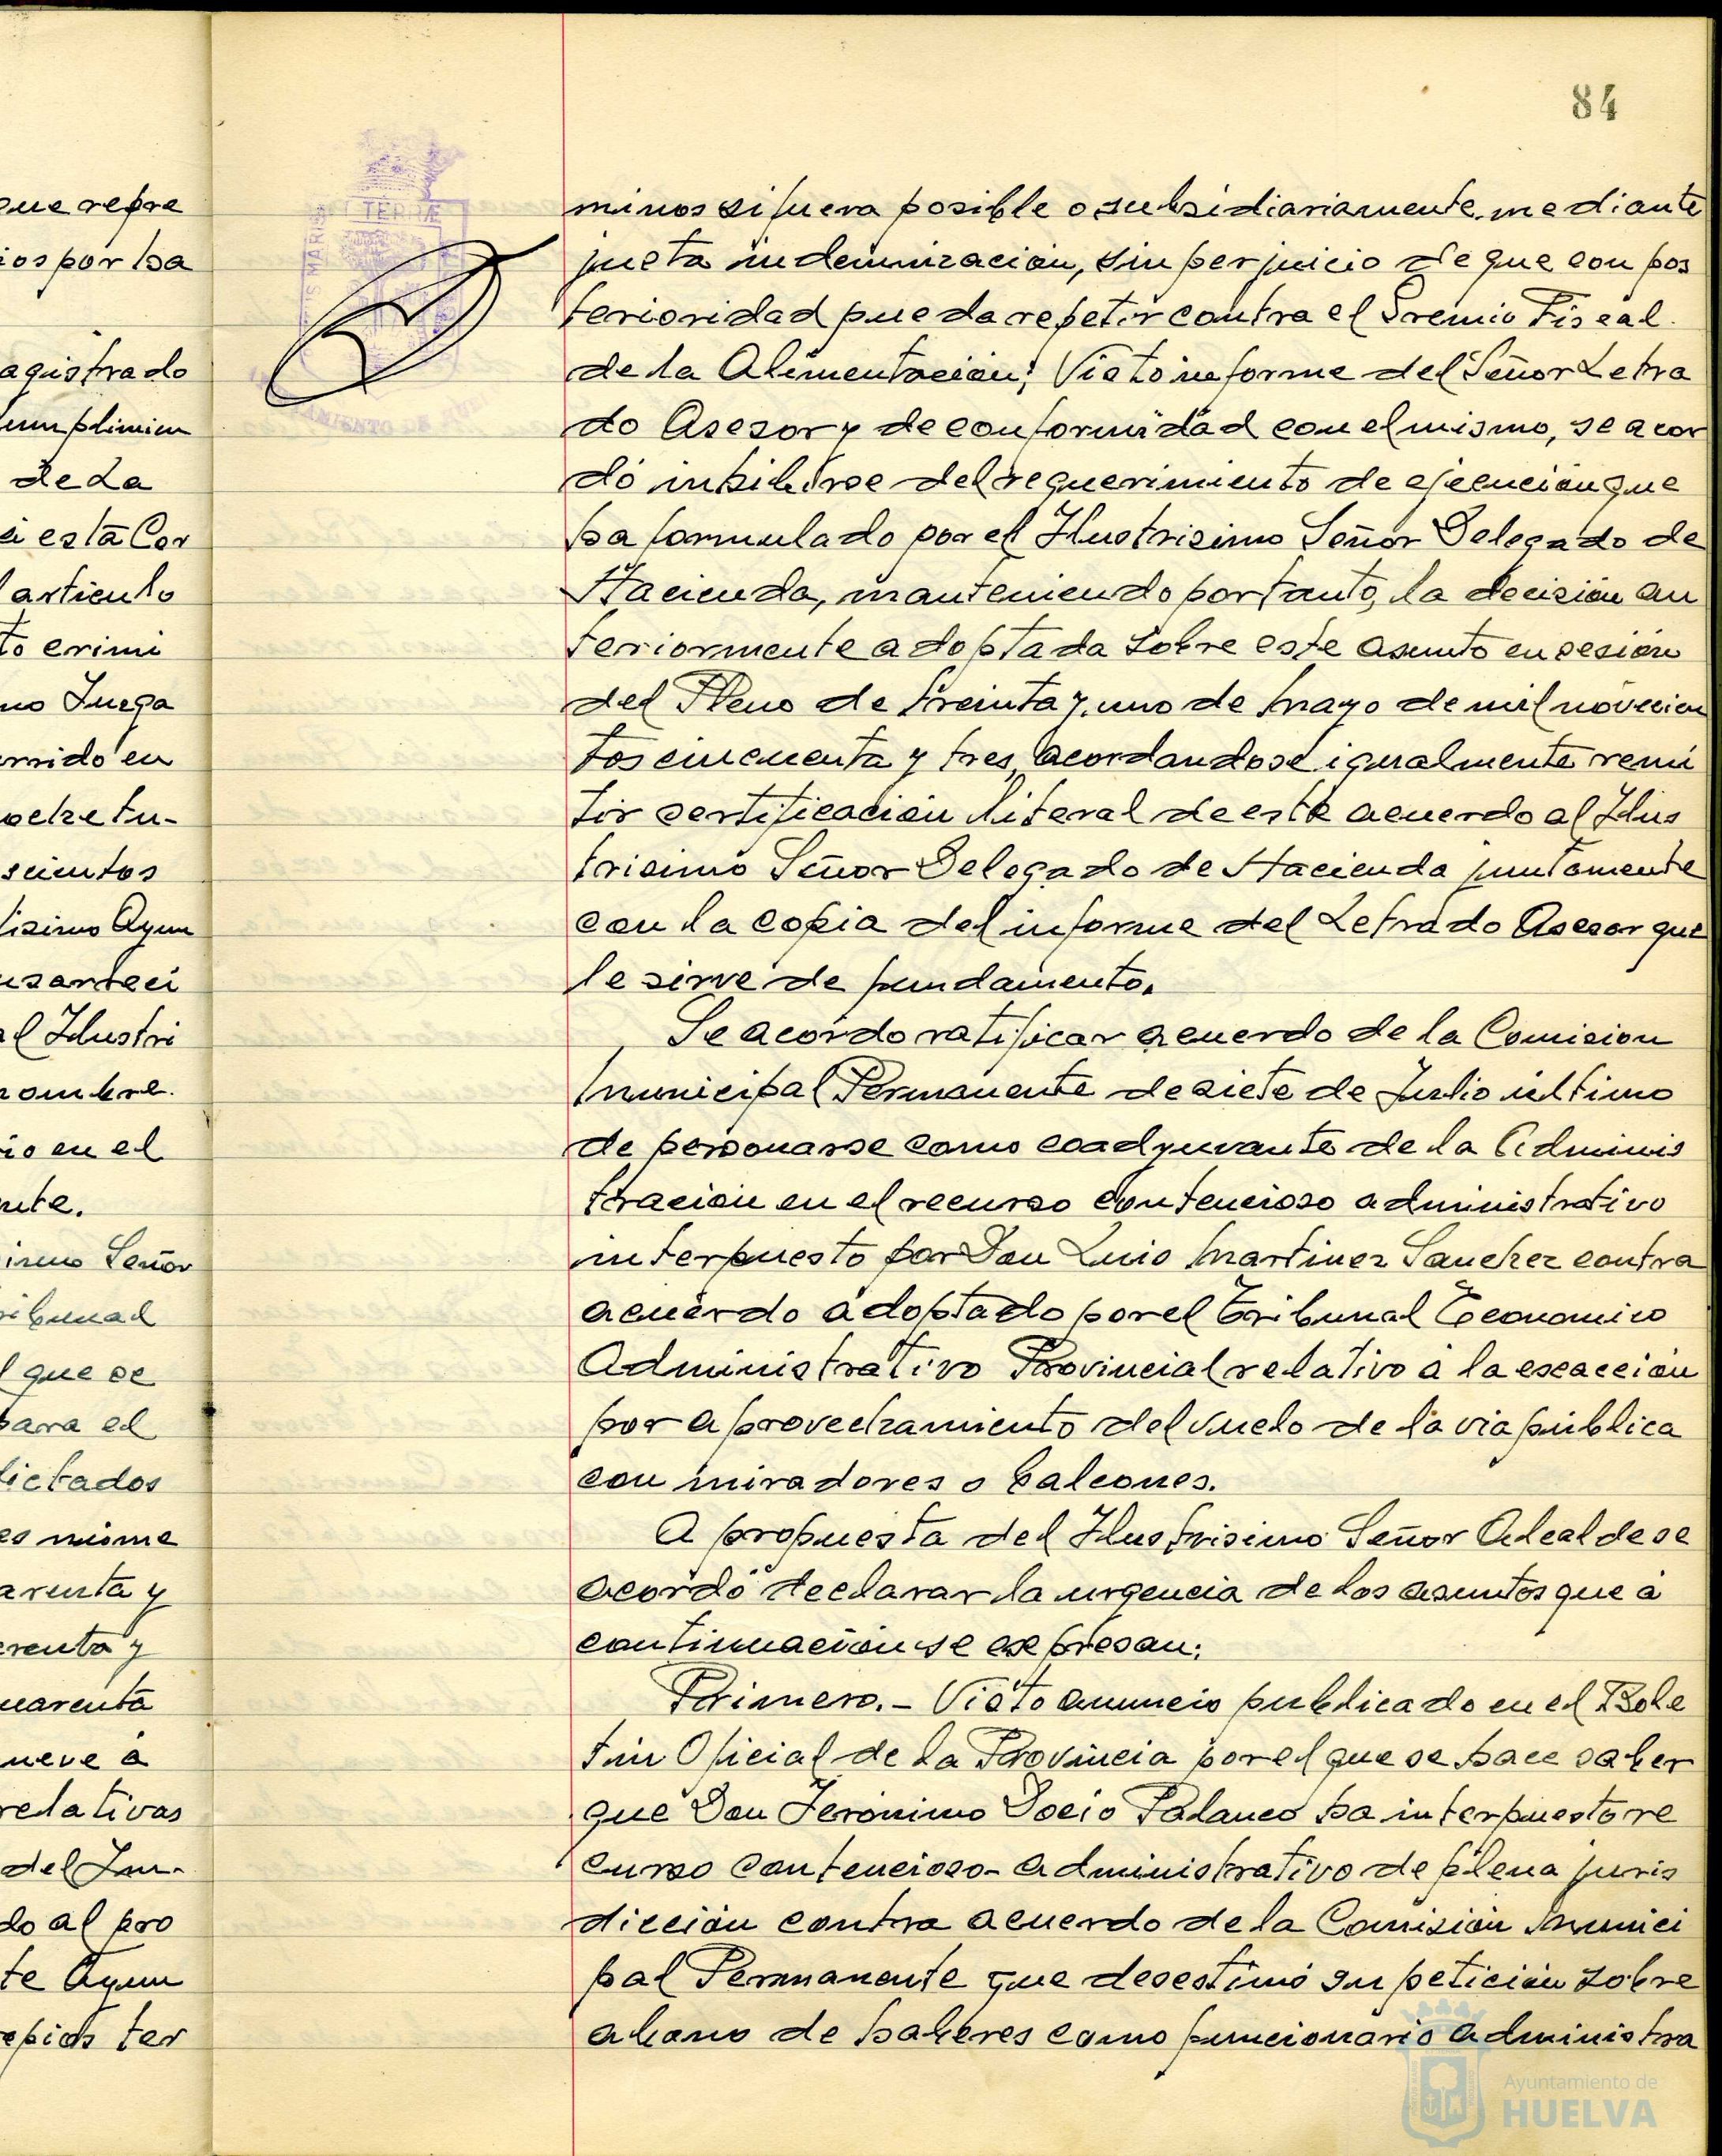 84
que repre
ios por ha
agistrado
cumplimien
de La
a esta Cor
l articulo
to crimi
no Juzga
rrido en
oche tu-
scientos
tisimo Ayun
usanteci
al Ilustri
nombre.
io en el
nte.
isimo Señor
ribunal
l que se
para el
dictados
es misma
arenta y
renta y
uarenta
ueve a
relativas
del Im-
do al pro
te Ayun
opios ter
TERRÆ
MARIS
AMIENTO DE HUEL
minos si fuera posible o subsidiariamente, mediante
justa indemnizacion, sin perjuicio de que con pos
terioridad pueda repetir contra el Gremio Fiscal
de la Alimentacion; Visto informe del Señor Letra
do Asesor y de conformidad con el mismo, se acor
dó inhibirse del requerimiento de ejecución que
ha formulado por el Ilustrisimo Señor Delegado de
Hacienda, manteniendo por tanto, la decisión an
teriormente adoptada sobre este asunto en sesión
del Pleno de treinta y uno de Mayo de mil novecien
tos cincuenta y tres, acordandose igualmente remi
tir certificación literal de este acuerdo al Ilus
trisimo Señor Delegado de Hacienda juntamente
con la copia del informe del Letrado Asesor que
le sirve de fundamento.
Se acordo ratificar acuerdo de la Comision
Municipal Permanente de siete de Julio ultimo
de personarse como coadyuvante de la Adminis
tracion en el recurso contencioso administrativo
interpuesto por Don Luis Martinez Sanchez contra
acuerdo adoptado por el Tribunal Economico
Administrativo Provincial relativo a la exacción
por aprovechamiento del vuelo de la via pública
con miradores o balcones.
A propuesta del Ilustrisimo Señor Alcalde se
acordó declarar la urgencia de los asuntos que a
continuación se expresan:
Primero.- Visto anuncio publicado en el Bole
tin Oficial de la Provincia por el que se hace saber
que Don Jeronimo Socio Palanco ha interpuesto re
curso contencioso-administrativo de plena juris
dicción contra acuerdo de la Comisión Munici
pal Permanente que desestimó su petición sobre
abono de haberes como funcionario administra
Ayuntamiento de
HUELVA